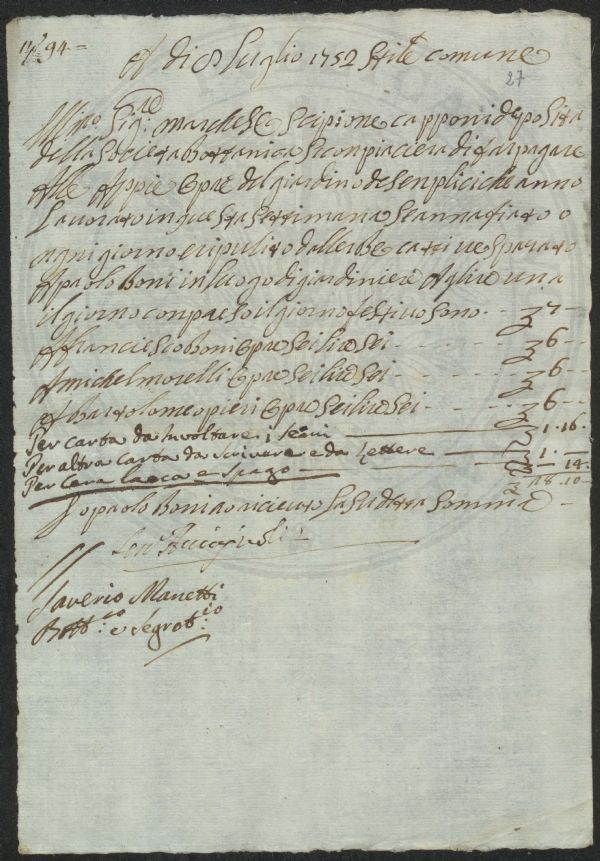 94
A di 8 Luglio 1752 Stile comune
27
Ill.mo Sig.re Marchese Scipione Capponi deposita
della Societa Bottanica Si conpiacera di far pagare
Alle Appie Opre del giardino de Senplici che anno
Lavorato in questa Settimana Se annafiato o
ogni giorno e ripulito dallerbe cattive Spazato
A paolo Boni in luogo di giardiniere A lire una
il giorno conpreso il giorno festivo Sono - - 7 -
A Franciesco Boni Opre Sei lire Sei - - - 6 -
A michel morelli Opre Sei lire Sei - - - 6 -
A Bartolomeo pieri Opre Sei lire Sei - - - 6 -
Per carta da Involtare i Semi - 1. 16.
Per altra carta da scrivere e da Lettere - 1. -
Per Cera lacca e Spago - - 14.
28. 10 -
Io paolo Boni o ricieuto La Sudetta Somma
Saverio Manetti
Bott.co e Segret.rio